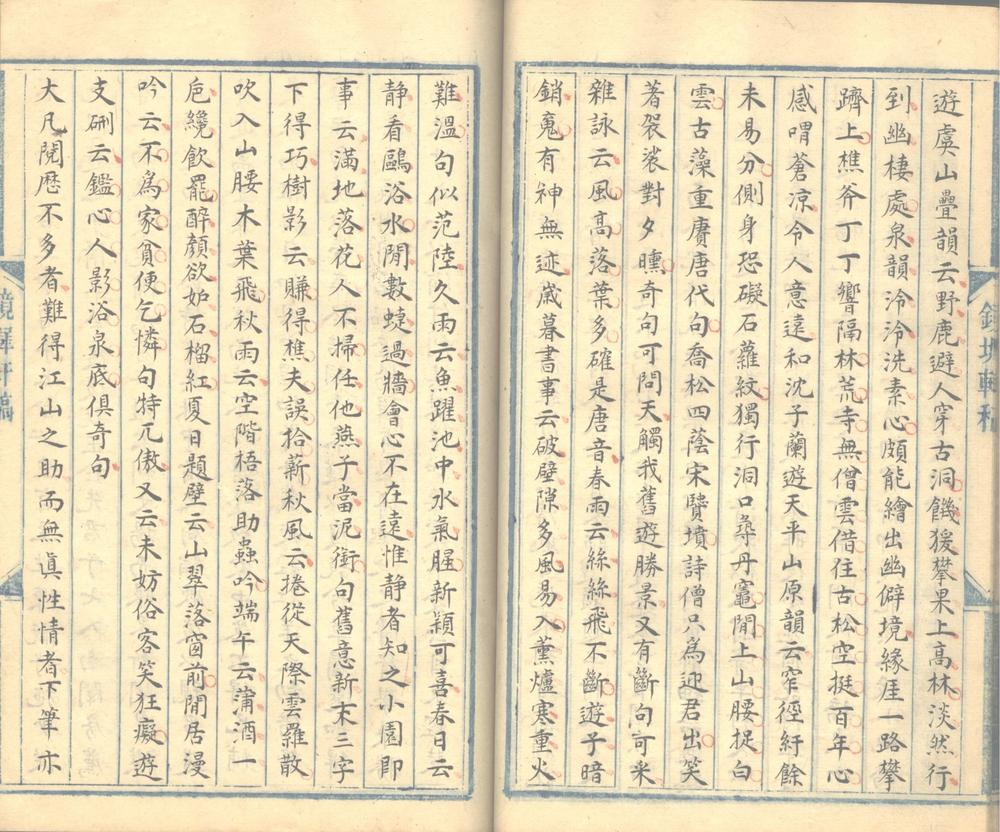 遊虞山疊韻云野鹿避人穿古洞饑猨攀果上高林淡然行
到幽棲處泉韻泠泠洗素心頗能繪出幽僻境緣崖一路攀
躋上樵斧丁丁響隔林荒寺無僧雲借住古松空挺百年心
感喟蒼涼令人意遠和沈子蘭遊天平山原韻云窄徑紆餘
未易分側身恐礙石蘿紋獨行洞口尋丹竈閒上山腰捉白
雲古藻重賡唐代句喬松四蔭宋賢墳詩僧只爲迎君出笑
著袈裟對夕曛奇句可問天觸我舊遊勝景又有斷句可采
雜詠云風高落葉多確是唐音春雨云絲絲飛不斷遊子暗
銷魂有神無迹歲暮書事云破壁隙多風易入薰爐寒重火
難溫句似范陸久雨云魚躍池中水氣腥新穎可喜春日云
靜看鷗浴水閒數蜨過牆會心不在遠惟靜者知之小園即
事云滿地落花人不掃任他燕子當泥銜句舊意新末三字
下得巧樹影云賺得樵夫誤拾薪秋風云捲從天際雲羅散
吹入山腰木葉飛秋雨云空階梧落助蟲吟端午云蒲酒一
巵纔飲罷醉顏欲如石榴紅夏日題壁云山翠落窗前閒居漫
吟云不爲家貧便乞憐句特兀傲又云未妨俗客笑狂癡遊
支硎云鑑心人影浴泉底俱奇句
大凡閱歷不多者難得江山之助而無真性情者下筆亦